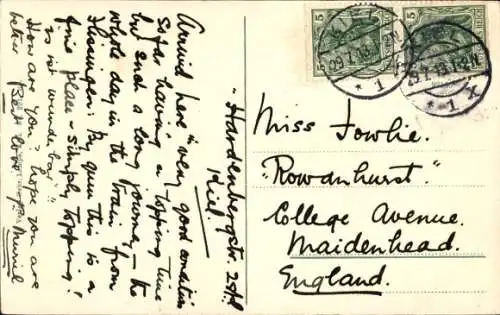 "Hardenbergstr. 25
Kiel.
Arrived here in very good condition
So far having a topping time
but such a long journey – the
whole day in the train from
Flissingen. By gum this is a
fine place – simply topping!
is it wunderbar"
How are you? hope you are
better. Best love. Muriel
5 5
KIEL
29.7.13.1-2N
* 1 X
Miss Fowlie.
"Rowanhurst."
College Avenue.
Maidenhead.
England.